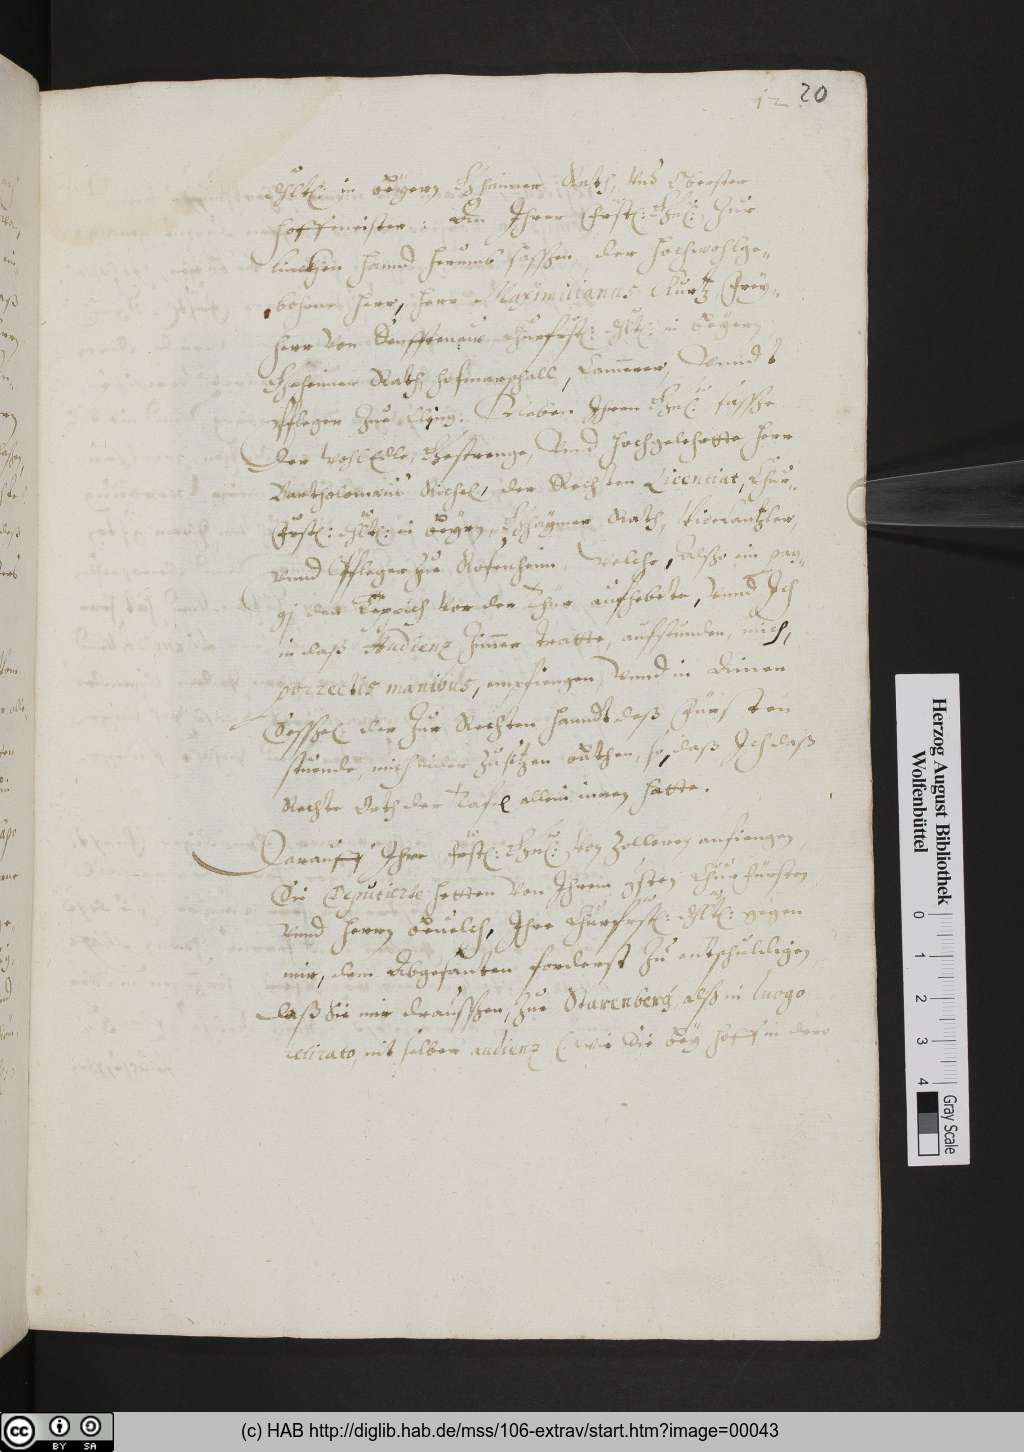 12 20
dhlt: in Beÿern Ghaimer Rath, und Obrister
hoffmeister: An Ihrer Fürstl: Gn: Zur
lincken hannd herumb sassen, der hochwohlge-
bohrne herr, herr Maximilianus Kurtz Freÿ-
herr von Senfftenaw, Churfürstl: dhlt: in Beÿern
Gehaimer Rath, hofmarschall, Cammerer, unnd
Pfleger Zue . Neben Ihren Gn: sasse
der wohledle, Gestrenge, und hochgelehrtte herr
Bartholomæus Richel, der Rechten Licentiat, Chur-
Fürstl: dhlt: in Beÿrn, Ghaÿmer Rath, Vicecantzler,
unnd Pfleger Zue Rosenheim. Welche, Alsso ein pag-
gj den Teppich vor der thür auffhebte, unnd Ich
in daß Audienz Zimer tratte, auffstunden, mich,
porrectis manibus, empfiengen, unnd in Einen
Sessel der Zur Rechten hanndt deß Fürsten
stuende, mich nider Zusitzen bathen, so, daß Ich daß
Rechte Orth der Tafel allein innen hatte.
Darauff Ihre Fürstl: Gn: von Zollern anfiengen,
Sie Deputierte hetten von Ihrem gsten Churfürsten
unnd herrn Beuelch, Ihre Churfürstl: dhlt: gegen
mir, dem Abgesanten forderst Zu entschuldigen,
daß Sie mir draussen, Zue Starenberg, alß in luogo
retirato, nit selber audienz (wie Sie beÿ hoff in dero
Herzog August Bibliothek
Wolfenbüttel
0 1 2 3 4
Gray Scale
cc BY SA
(c) HAB http://diglib.hab.de/mss/106-extrav/start.htm?image=00043